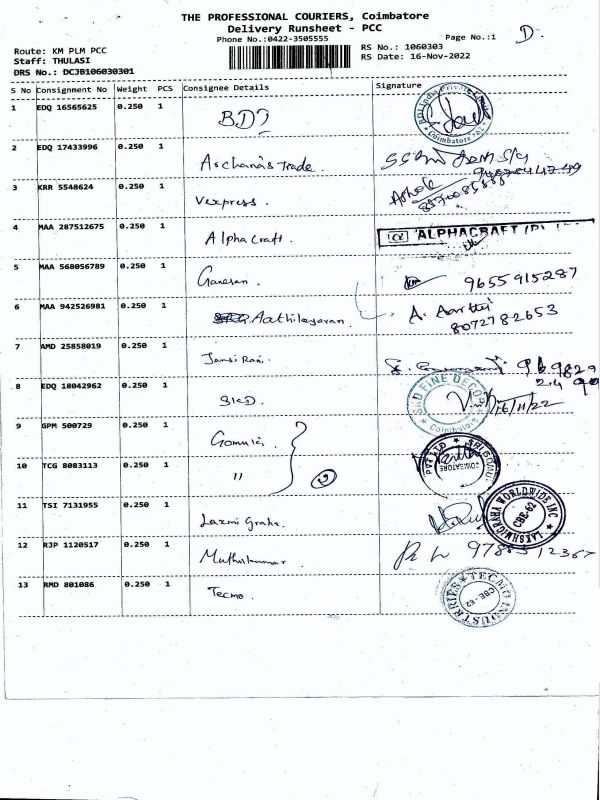 THE PROFESSIONAL COURIERS, Coimbatore
Delivery Runsheet - PCC
Phone No.:0422-3505555
Page No.:1 D.
Route: KM PLM PCC
RS No.: 1060303
Staff: THULASI
RS Date: 16-Nov-2022
DRS No.: DCJB106030301
S No Consignment No Weight PCS Consignee Details Signature
1 EDQ 16565625 0.250 1
2 EDQ 17433996 0.250 1 Archana's Trade.
3 KRR 5548624 0.250 1 Vexpress. Ashok
4 MAA 287512675 0.250 1 Alpha Craft. ALPHACRAFT
5 MAA 568056789 0.250 1 Ganesan. 9655915287
6 MAA 942526981 0.250 1 A. Aarthi
8072782653
7 AMD 25858019 0.250 1 Jansi Rani.
8 EDQ 18042962 0.250 1 SKD SKD FINE DECOR Coimbatore 16/11/22
9 GPM 500729 0.250 1
10 TCG 8083113 0.250 1 "
11 TSI 7131955 0.250 1 LAKSHMIGRAHA WORLDWIDE INC CBE-62
12 RJP 1120517 0.250 1 Muthukumar
13 RMD 801086 0.250 1 Tecmo. TECMO INDUSTRIES CBE-62